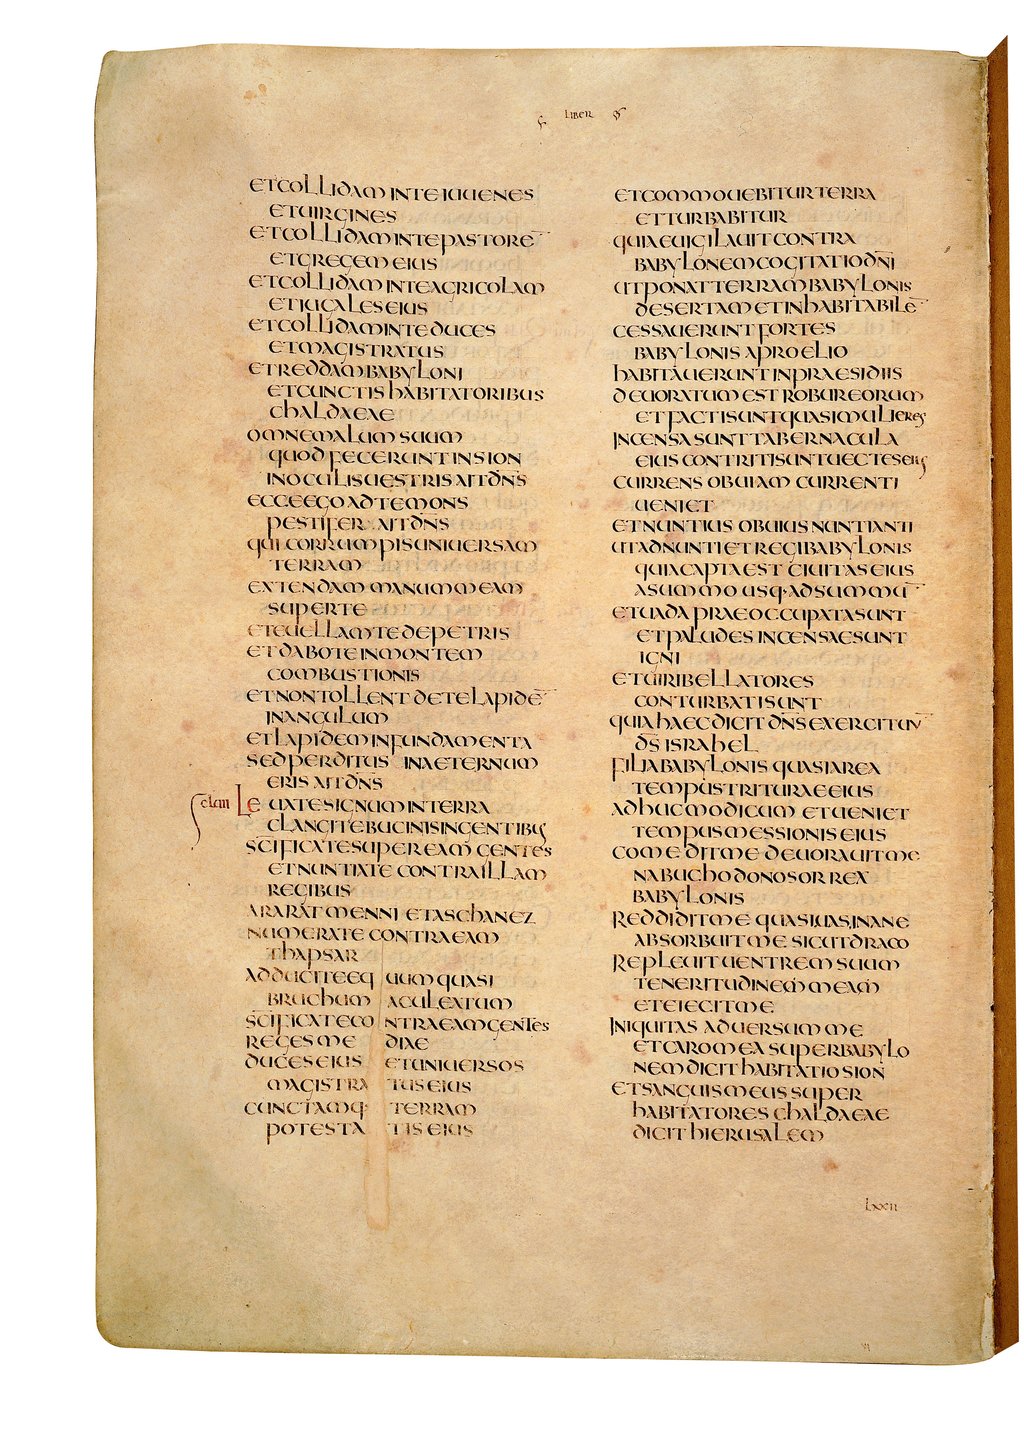 LIBER
ETCOLLIDAM INTE IUUENES
ETUIRGINES
ETCOLLIDAM INTE PASTORĒ
ETGREGEM EIUS
ETCOLLIDAM INTE AGRICOLAM
ETIUGALES EIUS
ETCOLLIDAM INTE DUCES
ETMAGISTRATUS
ETREDDAM BABYLONI
ETCUNCTIS HABITATORIBUS
CHALDAEAE
OMNE MALUM SUUM
QUOD FECERUNT IN SION
IN OCULIS UESTRIS AIT DN̄S
ECCE EGO AD TE MONS
PESTIFER AIT DN̄S
QUI CORRUMPIS UNIUERSAM
TERRAM
EXTENDAM MANUM MEAM
SUPER TE
ETEUELLAM TE DE PETRIS
ET DABO TE IN MONTEM
COMBUSTIONIS
ET NON TOLLENT DE TE LAPIDĒ
IN ANGULUM
ET LAPIDEM IN FUNDAMENTA
SED PERDITUS IN AETERNUM
ERIS AIT DN̄S
clam LEUATE SIGNUM IN TERRA
CLANGITE BUCINIS INGENTIBUS
SC̄IFICATE SUPER EAM GENTES
ET NUNTIATE CONTRA ILLAM
REGIBUS
ARARAT MENNI ET ASCHANEZ
NUMERATE CONTRA EAM
THAPSAR
ADDUCITE EQUUM QUASI
BRUCHUM ACULEATUM
SC̄IFICATE CONTRA EAM GENTES
REGES MEDIAE
DUCES EIUS ET UNIUERSOS
MAGISTRATUS EIUS
CUNCTAMQ· TERRAM
POTESTATIS EIUS
ET COMMOUEBITUR TERRA
ET TURBABITUR
QUIA EUIGILAUIT CONTRA
BABYLONEM COGITATIO DN̄I
UT PONAT TERRAM BABYLONIS
DESERTAM ET INHABITABILĒ
CESSAUERUNT FORTES
BABYLONIS A PROELIO
HABITAUERUNT IN PRAESIDIIS
DEUORATUM EST ROBUR EORUM
ET FACTI SUNT QUASI MULIERES
INCENSA SUNT TABERNACULA
EIUS CONTRITI SUNT UECTES EIUS
CURRENS OBUIAM CURRENTI
UENIET
ET NUNTIUS OBUIUS NUNTIANTI
UT ADNUNTIET REGI BABYLONIS
QUIA CAPTA EST CIUITAS EIUS
A SUMMO USQ· AD SUMMŪ
ET UADA PRAEOCCUPATA SUNT
ET PALUDES INCENSAE SUNT
IGNI
ET UIRI BELLATORES
CONTURBATI SUNT
QUIA HAEC DICIT DN̄S EXERCITUU̅
DS̄ ISRAHEL
FILIA BABYLONIS QUASI AREA
TEMPUS TRITURAE EIUS
ADHUC MODICUM ET UENIET
TEMPUS MESSIONIS EIUS
COMEDIT ME DEUORAUIT ME
NABUCHODONOSOR REX
BABYLONIS
REDDIDIT ME QUASI UAS INANE
ABSORBUIT ME SICUT DRACO
REPLEUIT UENTREM SUUM
TENERITUDINEM MEAM
ET EIECIT ME
INIQUITAS ADUERSUM ME
ET CARO MEA SUPER BABYLO
NEM DICIT HABITATIO SION
ET SANGUIS MEUS SUPER
HABITATORES CHALDAEAE
DICIT HIERUSALEM
LXXII